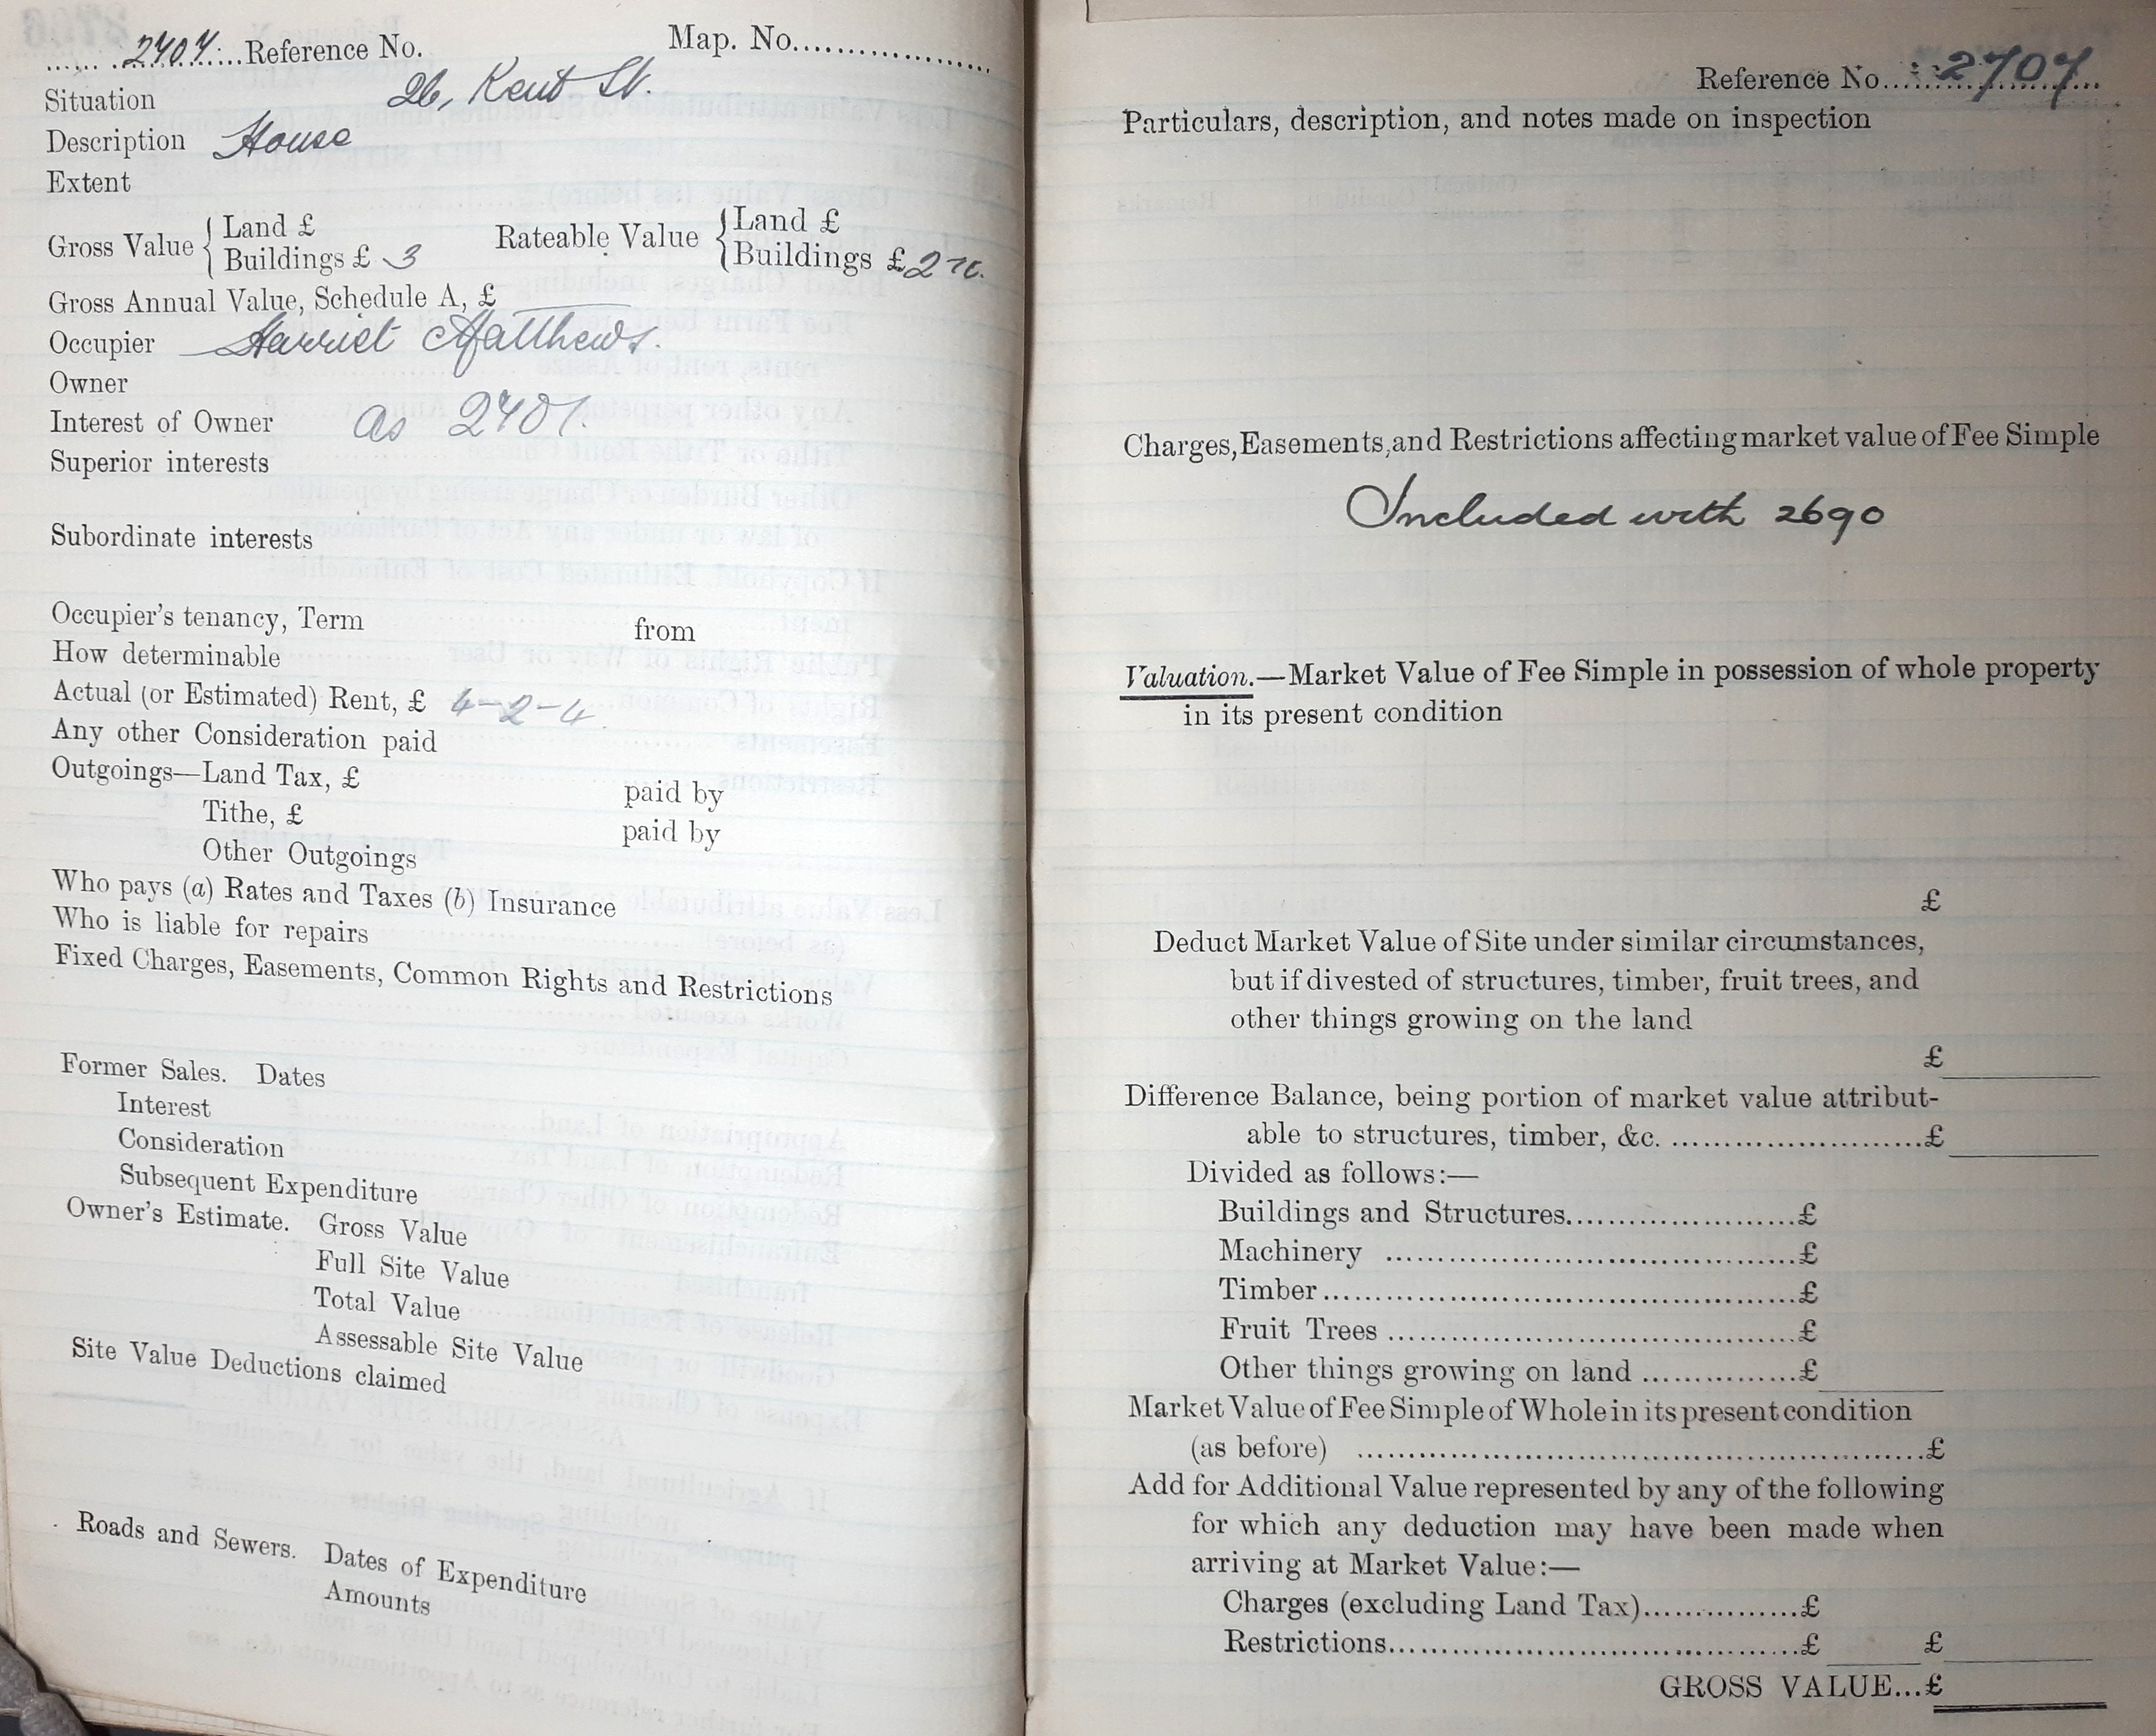 ...... 2707 ... Reference No.
Map. No....................
Situation 26, Kent St.
Description House
Extent
Gross Value { Land £
Buildings £ 3
Rateable Value { Land £
Buildings £ 2
Gross Annual Value, Schedule A, £
Occupier Harriet Matthews.
Owner
Interest of Owner as 2701.
Superior interests
Subordinate interests
Occupier's tenancy, Term from
How determinable
Actual (or Estimated) Rent, £ 4-2-4
Any other Consideration paid
Outgoings—Land Tax, £ paid by
Tithe, £ paid by
Other Outgoings
Who pays (a) Rates and Taxes (b) Insurance
Who is liable for repairs
Fixed Charges, Easements, Common Rights and Restrictions
Former Sales. Dates
Interest
Consideration
Subsequent Expenditure
Owner's Estimate. Gross Value
Full Site Value
Total Value
Assessable Site Value
Site Value Deductions claimed
Roads and Sewers. Dates of Expenditure
Amounts
Reference No. 2707
Particulars, description, and notes made on inspection
Charges, Easements, and Restrictions affecting market value of Fee Simple
Included with 2690
Valuation.—Market Value of Fee Simple in possession of whole property
in its present condition
£
Deduct Market Value of Site under similar circumstances,
but if divested of structures, timber, fruit trees, and
other things growing on the land
£
Difference Balance, being portion of market value attribut-
able to structures, timber, &c. ........................£
Divided as follows:—
Buildings and Structures......................£
Machinery ......................................£
Timber............................................£
Fruit Trees ......................................£
Other things growing on land ...............£
Market Value of Fee Simple of Whole in its present condition
(as before) .....................................................£
Add for Additional Value represented by any of the following
for which any deduction may have been made when
arriving at Market Value:—
Charges (excluding Land Tax)...............£
Restrictions......................................£ £
GROSS VALUE...£